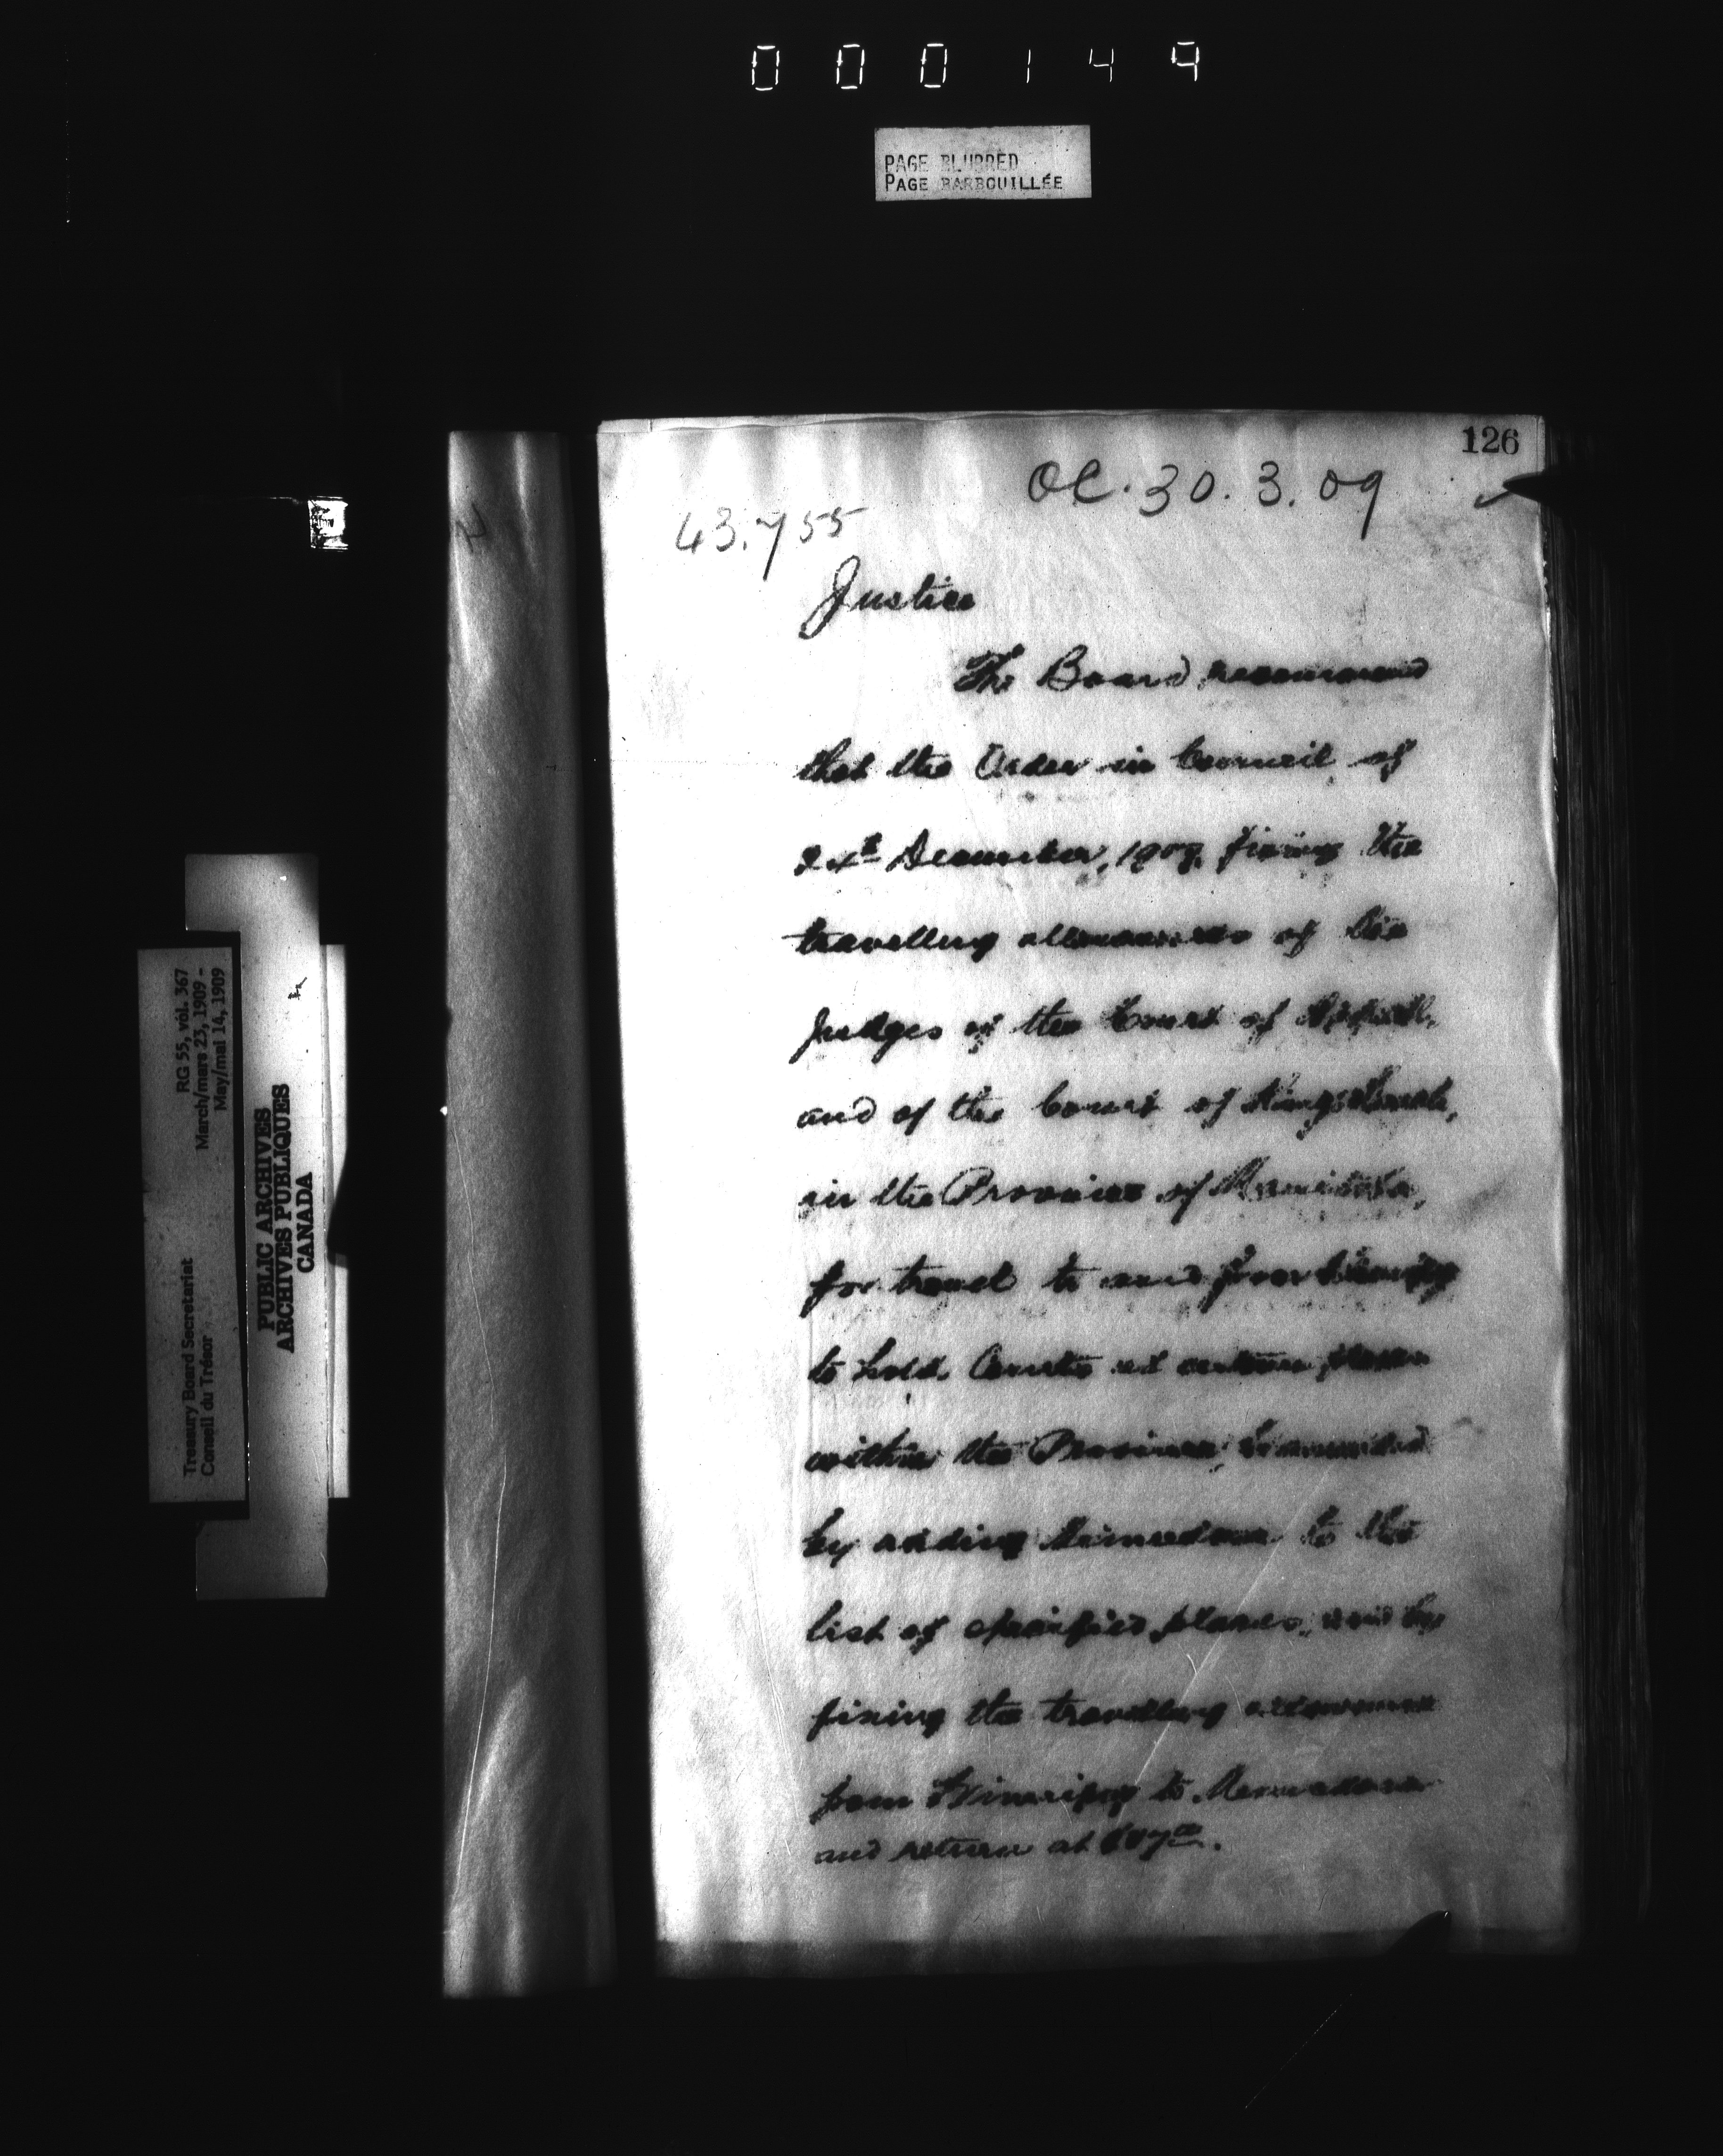 000149
PAGE BLURRED
PAGE BARBOUILLÉE
126
OC. 30. 3. 09
43.755
Justice
The Board recommend
that the Order in Council of
December, fixing the
travelling allowances of the
Judges of the Court of Appeal,
and of the Court of Kings Bench,
in the Province of Manitoba,
for travel to and from Winnipeg
to hold Courts at certain places
within the Province, be amended
by adding Minnedosa to the
list of specified places, and by
fixing the travelling allowance
from Winnipeg to Minnedosa
and return at
RG 55, vol. 367
March/mars 23, 1909 -
May/mai 14, 1909
Treasury Board Secretariat
Conseil du Trésor
PUBLIC ARCHIVES
ARCHIVES PUBLIQUES
CANADA